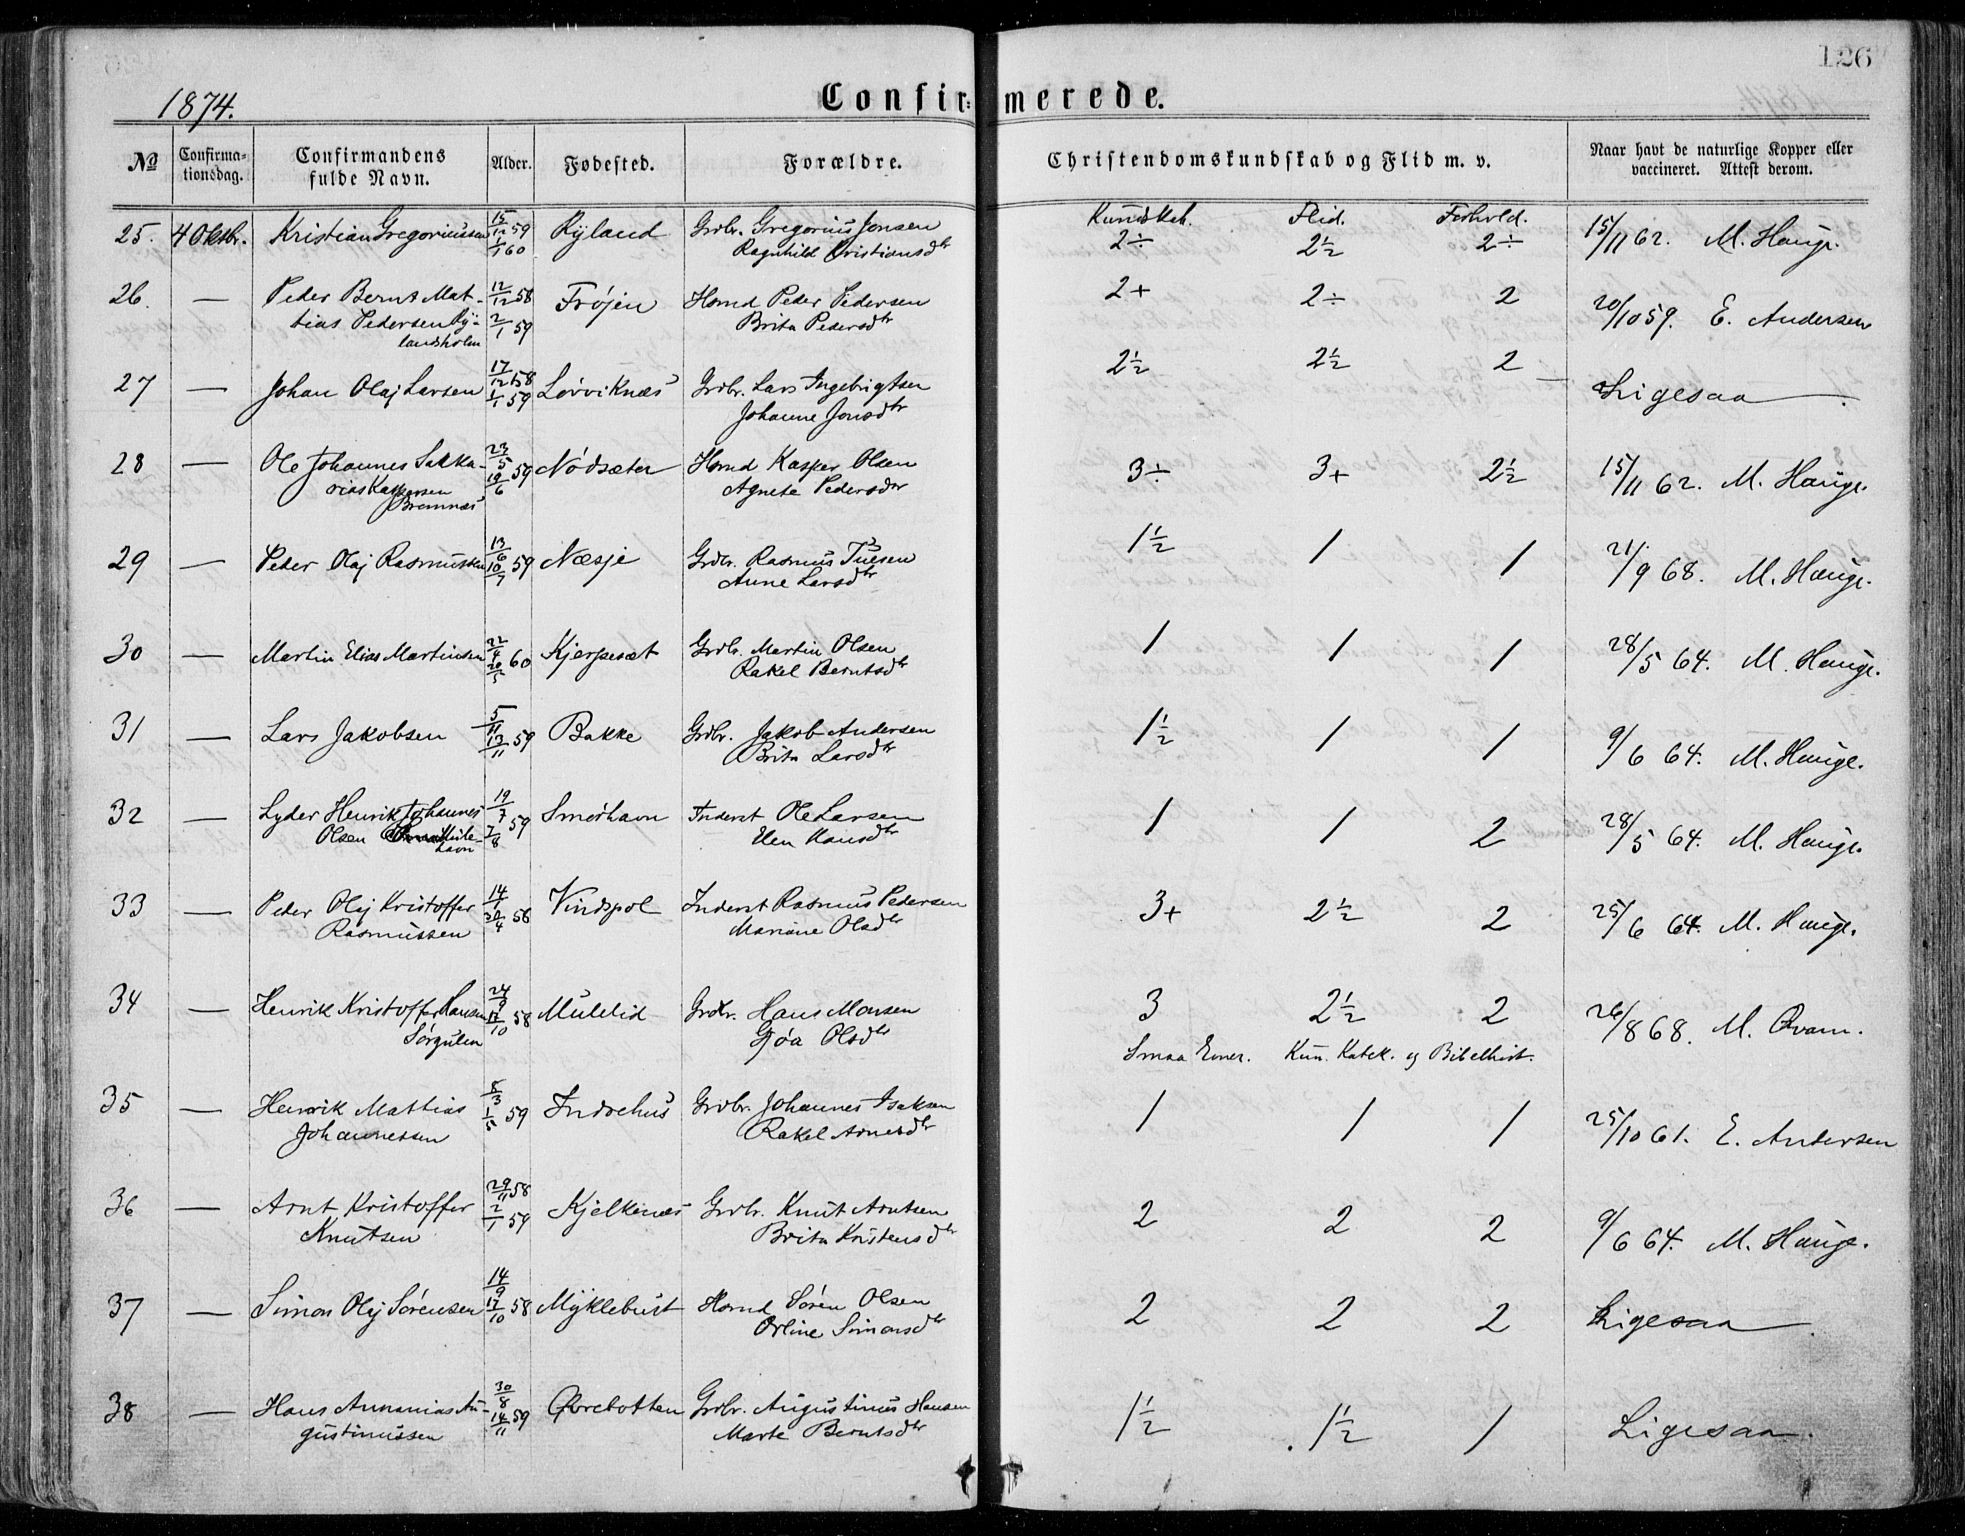 126
1874.
Confir= merede.
No
Confirma=
tionsdag.
Confirmandens
fulde Navn.
Alder.
Fødested.
Forældre.
Christendomskundskab og Flid m. v.
Naar havt de naturlige Kopper eller
vaccineret. Attest derom.
Kundskab. Flid. Forhold.
25. 4 Oktbr. Kristian Gregoriussen 15/12 59 1/1 60 Ryland Grdbr. Gregorius Jonsen
Ragnhild Kristiansdtr
2÷ 2½ 2÷ 15/11 62. M. Hauge.
26. — Peder Bernt Mat-
tias Pedersen Ry-
landsholm
12/12 58 2/1 59 Frøjen Hsmd Peder Pedersen
Brita Pedersdtr
2+ 2÷ 2 20/10 59. E. Andersen
27 — Johan Olaj Larsen 17/12 58 1/1 59 Løvviknæs Grdbr. Lars Ingebrigtsen
Johanne Jonsdtr
2½ 2½ 2 — Ligesaa
28 — Ole Johannes Sakka-
rias Kaspersen
Bremnæs
23/5 19/6 59 Nødsæter Hsmd Kasper Olsen
Agnete Pedersdtr
3÷ 3+ 2½ 15/11 62. M. Hauge.
29 — Peder Olaj Rasmussen 13/6 10/7 59 Næsje Grdbr. Rasmus
Anne Larsdtr
1½ 1 1 21/9 68. M. Hauge.
30 — Martin Elias Martinsen 22/4 20/5 60 Kjerpesæt Grdbr. Martin Olsen
Rakel Berntsdtr
1 1 1 28/5 64. M. Hauge.
31 — Lars Jakobsen 5/11 13/11 59 Bakke Grdbr. Jakob Andersen
Brita Larsdtr
1½ 1 1 9/6 64. M. Hauge.
32 — Lyder Henrik Johannes
Olsen
havn
19/7 7/8 59 Smørhavn Inderst Ole Larsen
Hansdtr
1 1 2 28/5 64. M. Hauge.
33 — Peder Olaj Kristoffer
Rasmussen
14/1 30/4 58 Vindspol Inderst Rasmus Pedersen
Mariane Olsdtr
3+ 2½ 2 25/6 64. M. Hauge.
34 — Henrik Kristoffer Hansen
Sørgulen
24/9 17/10 58 Mulelid Grdbr. Hans Monsen
Gjøa Olsdtr
3 2½ 2 26/8 68. M. Qvam.
Smaa Evner. Kun. Katek. og Bibelhist.
35 — Henrik Mattias
Johannessen
8/3 1/5 59 Indrehus Grdbr. Johannes Isaksen
Rakel Arnesdtr
1 1 1 25/10 61. E. Andersen
36 — Arnt Kristoffer
Knutsen
29/11 58 2/1 59 Kjelkenæs Grdbr. Knut Arntsen
Brita Kristensdtr
2 2 2 9/6 64. M. Hauge.
37 — Simon Olaj Sørensen 14/9 17/10 58 Myklebust Hsmd Søren Olsen
Orline Simonsdtr
2 2 2 Ligesaa
38 — Hans Annanias Au-
gustinussen
30/8 14/11 59 Øvrebotten Grdbr. Augustinus Hansen
Marte Berntsdtr
1½ 1½ 1 Ligesaa.